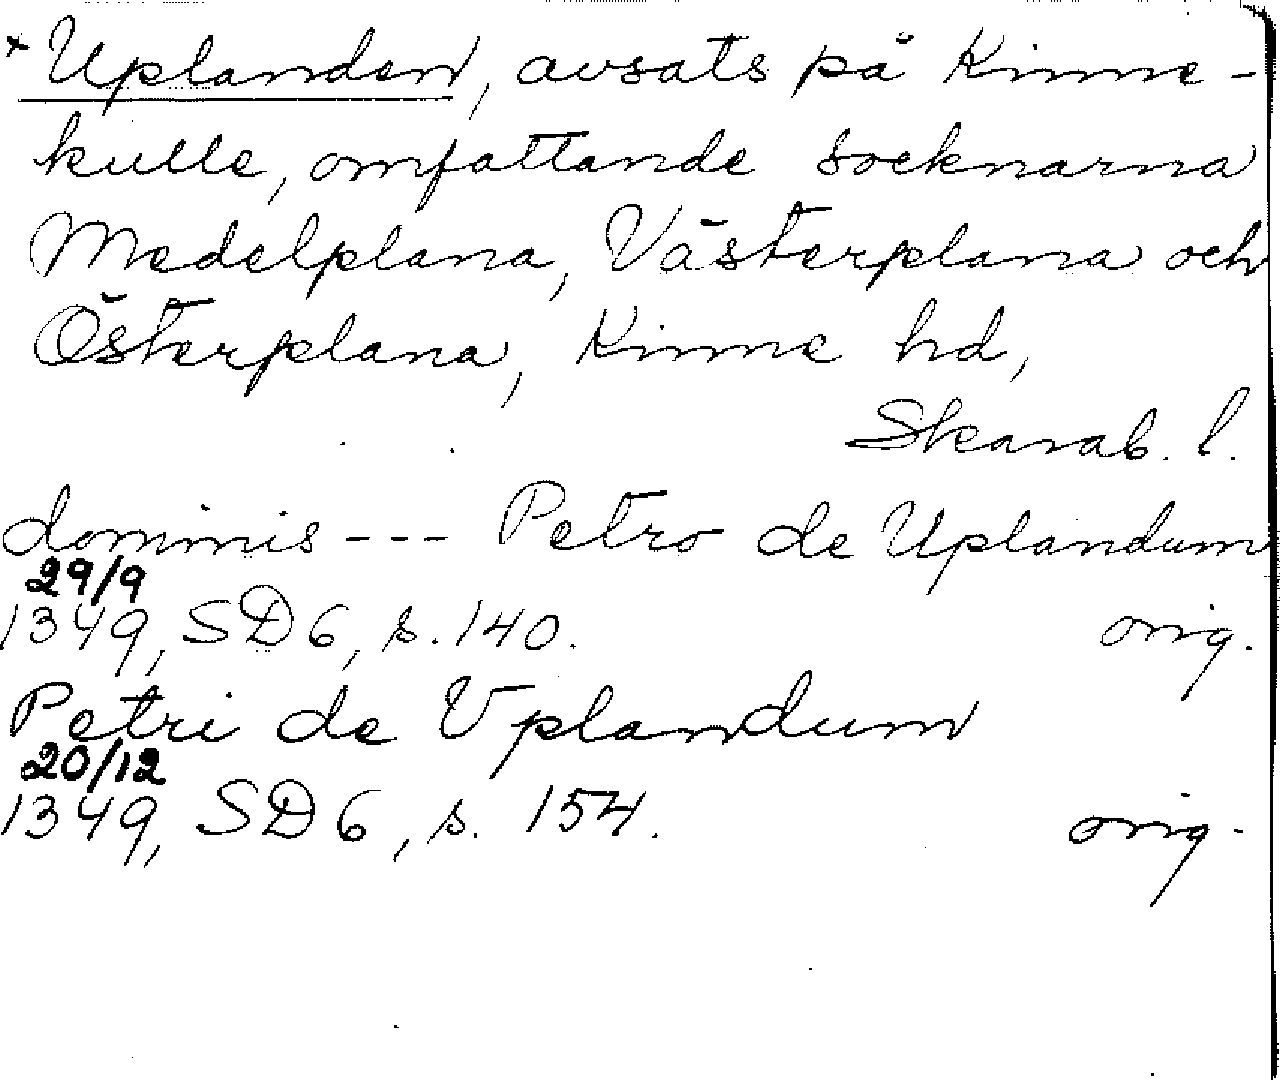 *Uplanden, avsats på Kinne-
kulle, omfattande socknarna
Medelplana, Västerplana och
Österplana, Kinne hd,
Skarab. l.
dominis --- Petro de Uplandum
29/9
1349, SD 6, s. 140. orig.
Petri de Vplandum
20/12
1349, SD 6, s. 154. orig.